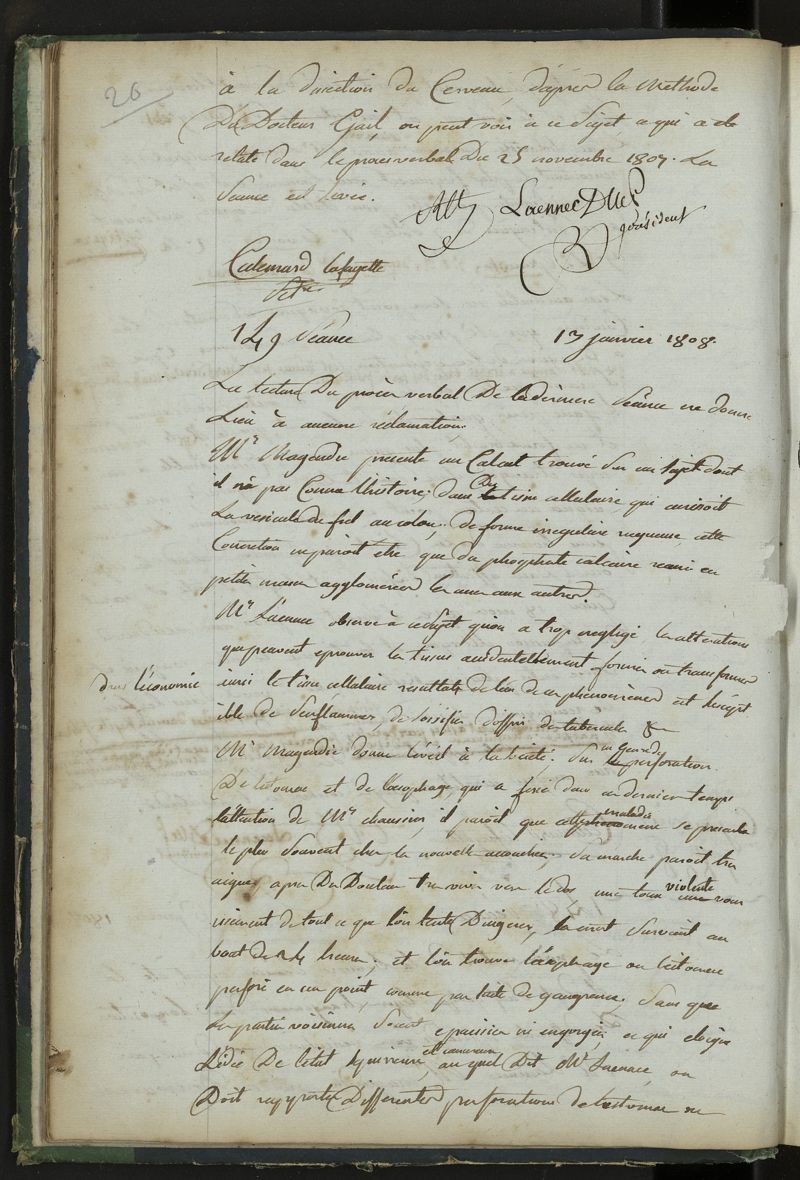 26
à la direction du Cerveau, d'après la Methode
Du Docteur Gall, on peut voir à ce Sujet, ce qui a eté
relaté dans le procès verbal Du 25 novembre 1807. La
Séance est levée.
Laennec D.M.P.
président
Calemard Lafayette
Sectre
149 Séance 13 janvier 1808.
La lecture Du procès verbal De la dernière Séance ne donne
Lieu à aucune réclamation.
Mr Magendie presente un Calcul trouvé Sur un sujet dont
il n'a pas Connu l'histoire; dans le tissu cellulaire qui unissoit
La vesicule du fiel au colon; de forme irreguliere rugueuse, cette
Concretion ne paroit etre que du phosphate calcaire reuni en
petites masses agglomérées les unes aux autres.
Mr Laennec observe à ce Sujet qu'on a trop negligé les alterations
que peuvent eprouver les tissus accidentellement formés ou transformés
dans l'économie
ainsi le tissu cellulaire resultat de l'un de ces phenomènes est suscept
ible de S'enflammer, de s'ossifier d'offrir des tubercules &c
Mr Magendie donne l'éveil à la Société Sur un genre de perforation
De l'estomac et de l'oesophage qui a fixé dans ces derniers temps
l'attention de Mr Chaussier, il paroit que cette maladie se presente
le plus Souvent chez les nouvelles accouchées, Sa marche paroit tres
aigue, apres Des Douleurs tres vives vers le dos, une toux violente vomi
ssement de tout ce que l'on tente D'ingerer, la mort Survient au
bout de 24 heures; et l'on trouve l'oesophage ou l'estomac
perforé en un point, comme par suite de gangrene, Sans que
Les parties voisines Soient epaissies ni engorgées, ce qui eloigne
L'idée De l'état squirreux et cancereux, auquel Dit Mr Laennec, on
Doit rapporter Differentes perforations de l'estomac ou